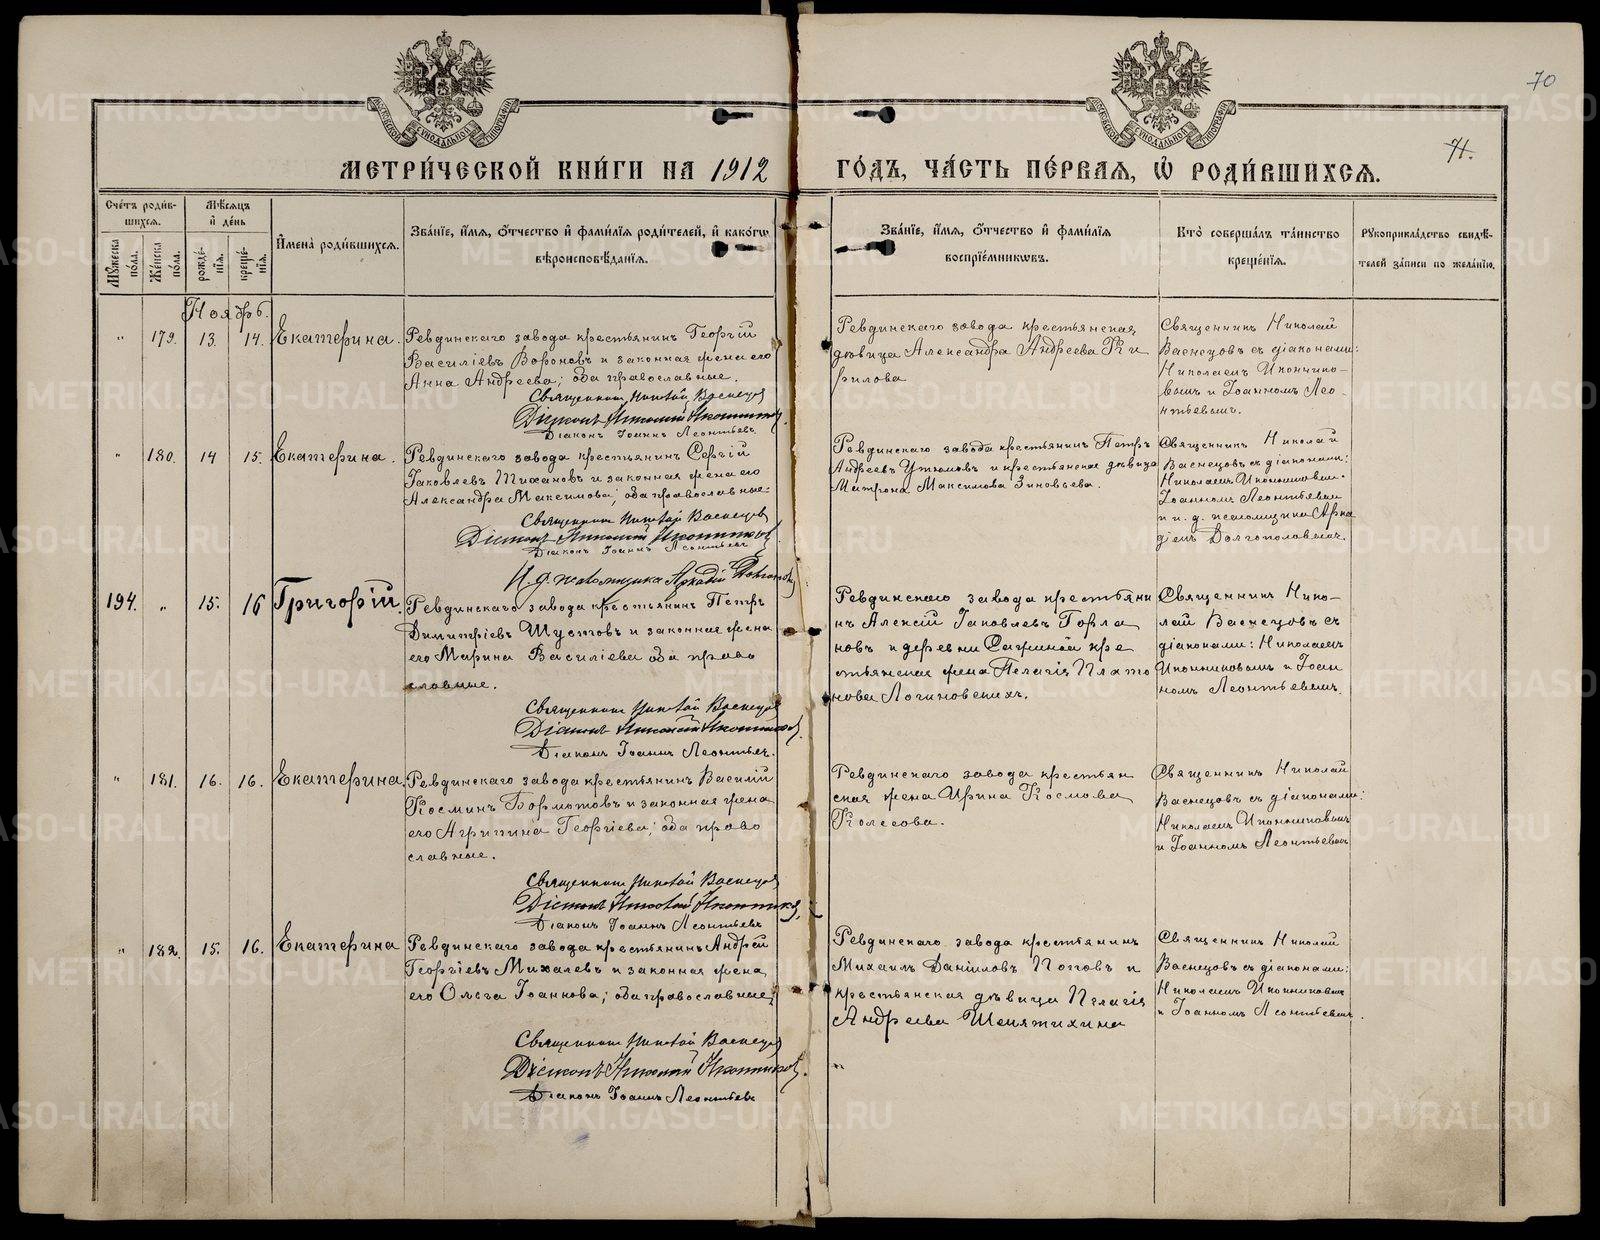 70
71.
МЕТРИ́ЧЕСКОЙ КНИ́ГИ НА 1912 ГО́ДЪ, ЧА́СТЬ ПЕ́РВАЯ, Ѡ҆ РОДИ́ВШИХСЯ.
Сче́тъ роди́в-
шихся.
Му́жеска по́ла.
Же́нска по́ла.
Мѣ́сяцъ
и҆ де́нь
рожде́-
нїя.
креще́-
нїя.
И҆мена̀ роди́вшихся.
Зва́нїе, и҆́мя, ѻ҆́тчество и҆ фами́лїя роди́телей, и҆ како́гѡ
вѣроисповѣ́данїя.
Зва́нїе, и҆́мя, ѻ҆́тчество и҆ фами́лїя
воспрїе́мникѡвъ.
Кто̀ соверша́лъ та́инство
креще́нїя.
Рꙋкоприкла́дство свидѣ́-
телей за́писи по жела́нїю.
Ноябрь.
" 179. 13. 14. Екатерина.
Ревдинскаго завода крестьянинъ Георгій
Василіевъ Вороновъ и законная жена его
Анна Андреева; оба православные.
Священникъ Николай Васнецов
Діаконъ Николай Иконников.
Діаконъ Іоаннъ Леонтьевъ.
Ревдинскаго завода крестьянская
дѣвица Александра Андреева Ки
рилова
Священникъ Николай
Васнецовъ съ діаконами:
Николаемъ Иконнико-
вымъ и Іоанномъ Лео-
нтьевымъ.
" 180. 14 15. Екатерина.
Ревдинскаго завода крестьянинъ Сергій
Іаковлевъ Тихановъ и законная жена его
Александра Максимова; оба православные.
Священникъ Николай Васнецов
Діаконъ Николай Иконников
Діаконъ Іоаннъ Леонтьевъ
И. д. псаломщика Аркадій
Ревдинскаго завода крестьянинъ Петръ
Андреевъ Утюмовъ и крестьянская дѣвица
Матрона Максимова Зиновьева.
Священникъ Николай
Васнецовъ съ діаконами:
Николаемъ Иконниковым.
Іоанномъ Леонтьевым
и и. д. псаломщика Арка
діемъ Долгополовымъ.
194. " 15. 16 Григорій.
Ревдинскаго завода крестьянинъ Петръ
Димитріевъ Шустовъ и законная жена
его Марина Василіева оба право
славные.
Священникъ Николай Васнецов
Діаконъ Николай Иконников.
Діаконъ Іоаннъ Леонтьев.
Ревдинскаго завода крестьяни
нъ Алексій Іаковлевъ Горла
новъ и деревни Сажиной кре
стьянская жена Пелагія Плато
нова Логиновскихъ.
Священникъ Нико-
лай Васнецовъ съ
діаконами: Николаемъ
Иконниковымъ и Іоан
номъ Леонтьевымъ.
" 181. 16. 16. Екатерина.
Ревдинскаго завода крестьянинъ Василій
Космин Бормотовъ и законная жена
его Агрипина Георгіева; оба право
славные.
Священникъ Николай Васнецов
Діаконъ Николай Иконников,
Діаконъ Іоаннъ Леонтьевъ
Ревдинскаго завода крестьян
ская жена Ирина Космова
Колесова.
Священникъ Николай
Васнецовъ съ діаконами:
Николаемъ Иконниковымъ
и Іоанномъ Леонтьевымъ
" 182. 15. 16. Екатерина
Ревдинскаго завода крестьянинъ Андрей
Георгіевъ Михалевъ и законная жена
его Ольга Іоаннова; оба православные,
Священникъ Николай Васнецов
Діаконъ Николай Иконников.
Діаконъ Іоаннъ Леонтьевъ
Ревдинскаго завода крестьянинъ
Михаилъ Даніиловъ Поповъ и
крестьянская дѣвица Пелагія
Андреева Шемятихина
Священникъ Николай
Васнецовъ съ діаконами:
Николаемъ Иконниковым
и Іоанномъ Леонтьевым.
METRIKI.GASO-URAL.RU